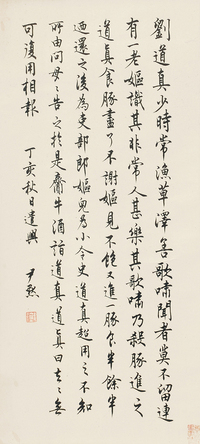 劉道真少時常漁草澤善歌嘯聞者莫不留連
有一老嫗識其非常人甚樂其歌嘯乃殺豚進之
道真食豚盡了不謝嫗見不飽又進豚食半餘半
迺還之後為吏部郎嫗兒為小令史道真超用之不知
所由問母母告之於是齎牛酒詣道真道真曰去去無
可復用相報 丁亥秋日遣興 尹默